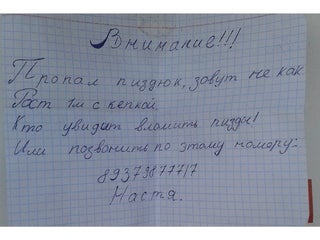 Внимание!!!
Пропал пиздюк, зовут не как.
Рост 1м с кепкой.
Кто увидит вломить пизды!
Или позвонить по этому номеру:
89373877717
Настя.